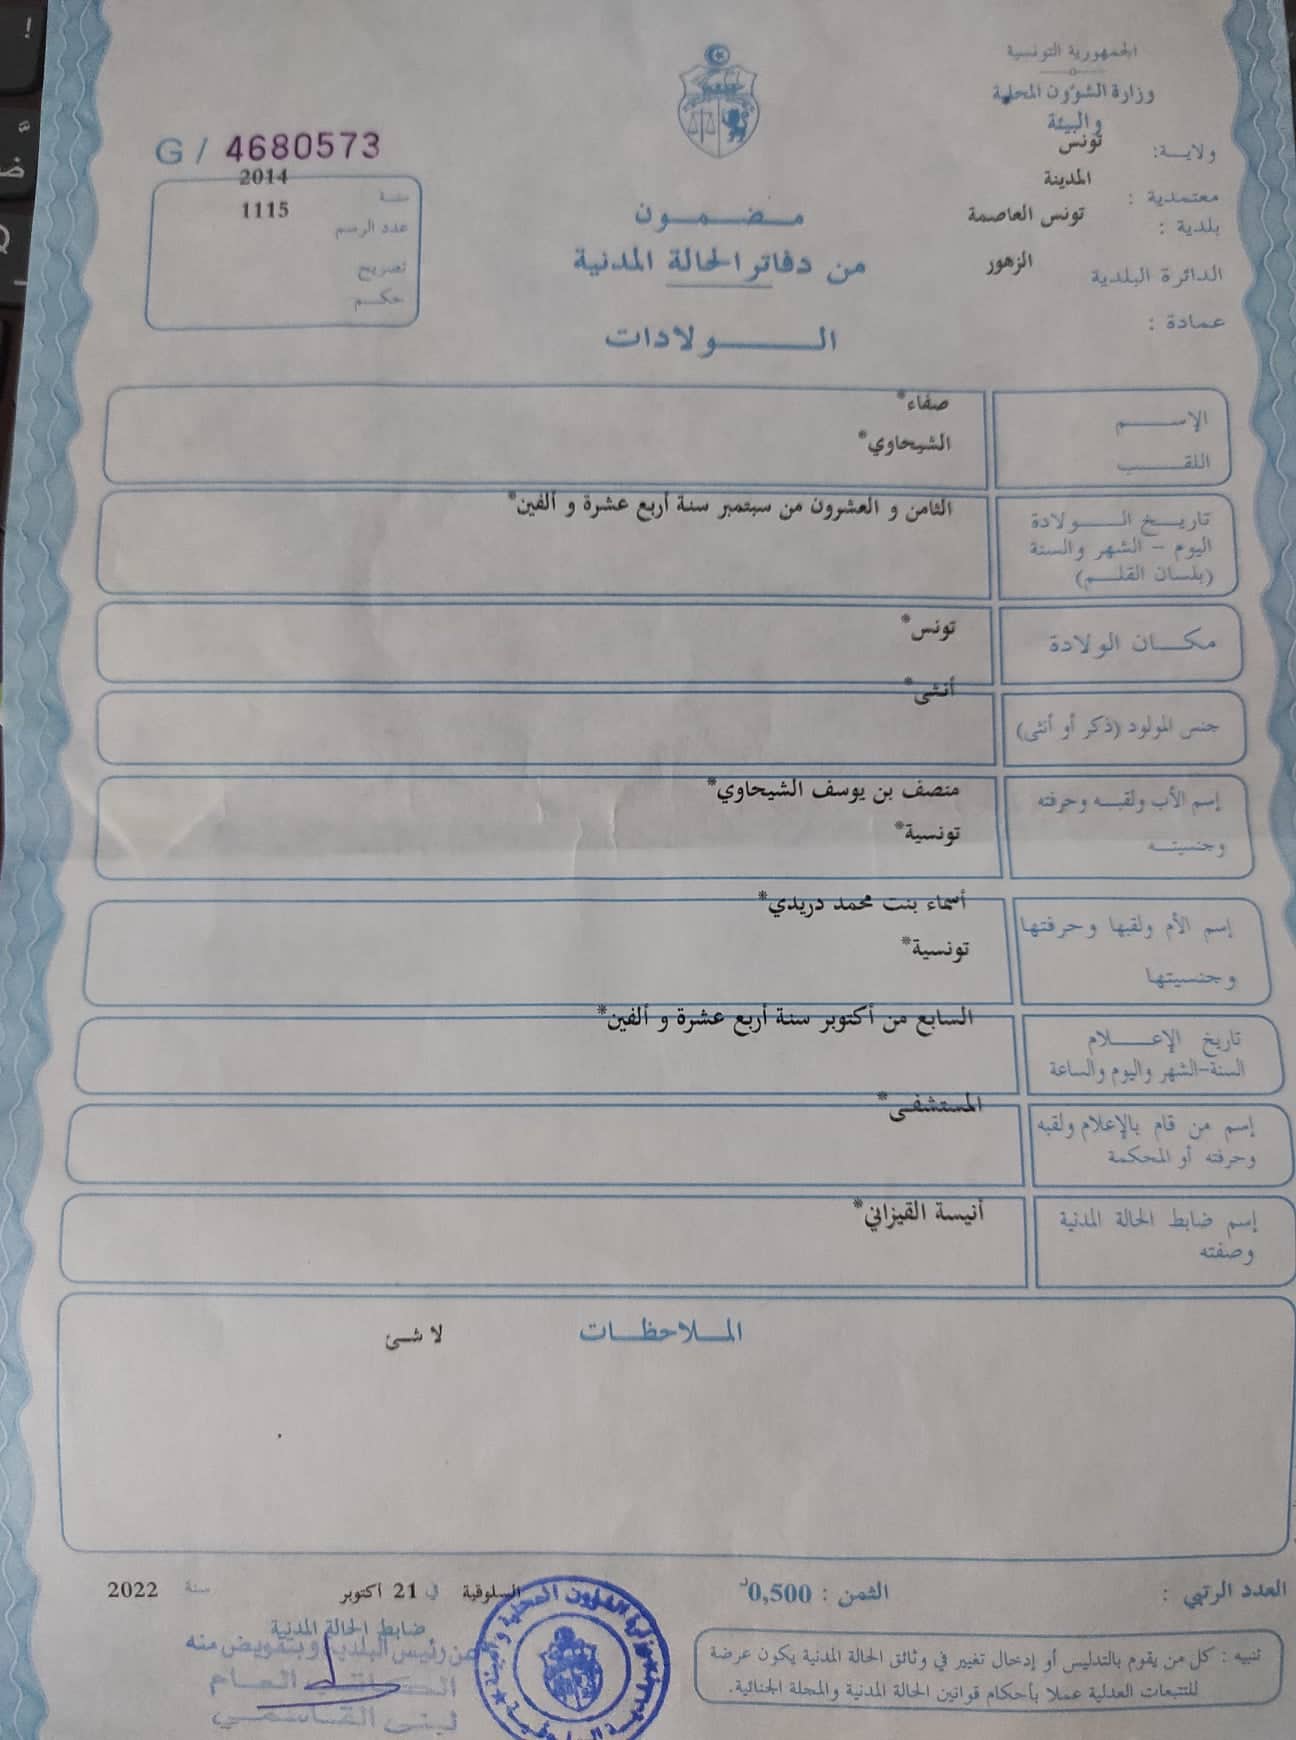 الجمهورية التونسية
وزارة الشؤون المحلية
والبيئة
ولايــة: تونس
معتمدية : المدينة
بلدية : تونس العاصمة
الدائرة البلدية الزهور
عمادة :
مـضـمـون
من دفاتر الحالة المدنية
الـــولادات
G / 4680573
سنة 2014
عدد الرسم 1115
تصريح
حكـم
الإســم صفاء*
اللقــب الشيحاوي*
تاريـخ الــولادة الثامن و العشرون من سبتمبر سنة أربع عشرة و ألفين*
اليوم - الشهر والسنة
(بلسان القلـم)
مكـان الولادة تونس*
جنس المولود (ذكر أو أنثى) أنثى*
إسم الأب ولقبـه وحرفته منصف بن يوسف الشيحاوي*
وجنسيتـه تونسية*
إسم الأم ولقبها وحرفتها أسماء بنت محمد دريدي*
وجنسيتها تونسية*
تاريخ الإعــلام السابع من أكتوبر سنة أربع عشرة و ألفين*
السنة-الشهر واليوم والساعة
إسم من قام بالإعلام ولقبه المستشفى*
وحرفته أو المحكمة
إسم ضابط الحالة المدنية أنيسة القيزاني*
وصفته
المـلاحظـات لا شئ
العدد الرتبي :
الثمن : 0,500د
السلوقية في 21 اكتوبر سنة 2022
ضابط الحالة المدنية
عن رئيس البلدية وبتفويض منه
الكاتب العام
لبنى القاسمي
تنبيه : كل من يقوم بالتدليس أو إدخال تغيير في وثائق الحالة المدنية يكون عرضة
للتتبعات العدلية عملا بأحكام قوانين الحالة المدنية والمجلة الجنائية.
وزارة الشؤون المحلية و البيئة